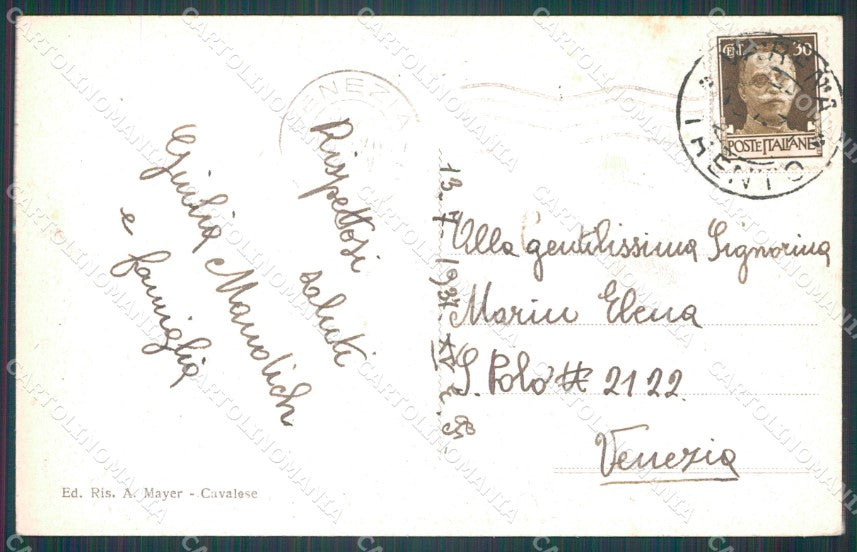 CENT. 30
POSTE ITALIANE
TRENTO
VENEZIA
Rispettosi
saluti
Giulia Manolich
e famiglia
13.7.1937. XV E.F.
Alla Gentilissima Signorina
Marin Elena
S. Polo # 2122.
Venezia
Ed. Ris. A. Mayer - Cavalese
CARTOLINOMANIA